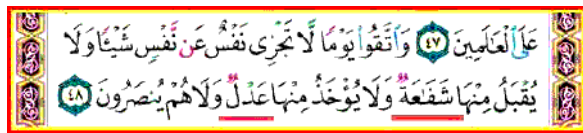 عَلَى ٱلْعَـٰلَمِينَ ٤٧ وَٱتَّقُوا۟ يَوْمًا لَّا تَجْزِى نَفْسٌ عَن نَّفْسٍ شَيْـًٔا وَلَا
يُقْبَلُ مِنْهَا شَفَـٰعَةٌ وَلَا يُؤْخَذُ مِنْهَا عَدْلٌ وَلَا هُمْ يُنصَرُونَ ٤٨